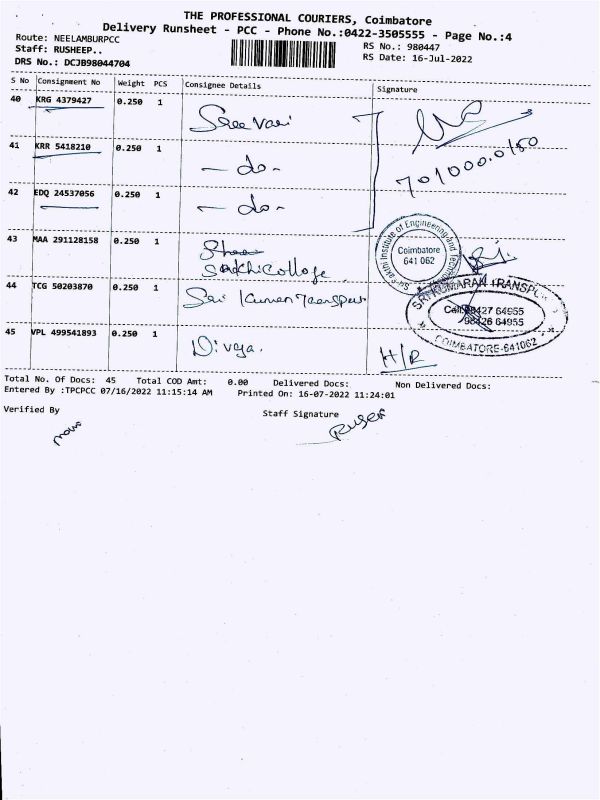 THE PROFESSIONAL COURIERS, Coimbatore
Delivery Runsheet - PCC - Phone No.:0422-3505555 - Page No.:4
Route: NEELAMBURPCC
Staff: RUSHEEP..
DRS No.: DCJB98044704
RS No.: 980447
RS Date: 16-Jul-2022
S No Consignment No Weight PCS Consignee Details Signature
40 KRG 4379427 0.250 1 Sree Vari
41 KRR 5418210 0.250 1 - do -
42 EDQ 24537056 0.250 1 - do -
43 MAA 291128158 0.250 1
44 TCG 50203870 0.250 1 Sri Kumaran Transport
45 VPL 499541893 0.250 1 Divya. H/R
Institute of Engineering and Technology
Coimbatore
641 062
SRI KUMARAN TRANSPORT
Cell: 98427 64955
98426 64955
COIMBATORE-641062
Total No. Of Docs: 45 Total COD Amt: 0.00 Delivered Docs: Non Delivered Docs:
Entered By :TPCPCC 07/16/2022 11:15:14 AM Printed On: 16-07-2022 11:24:01
Verified By Staff Signature